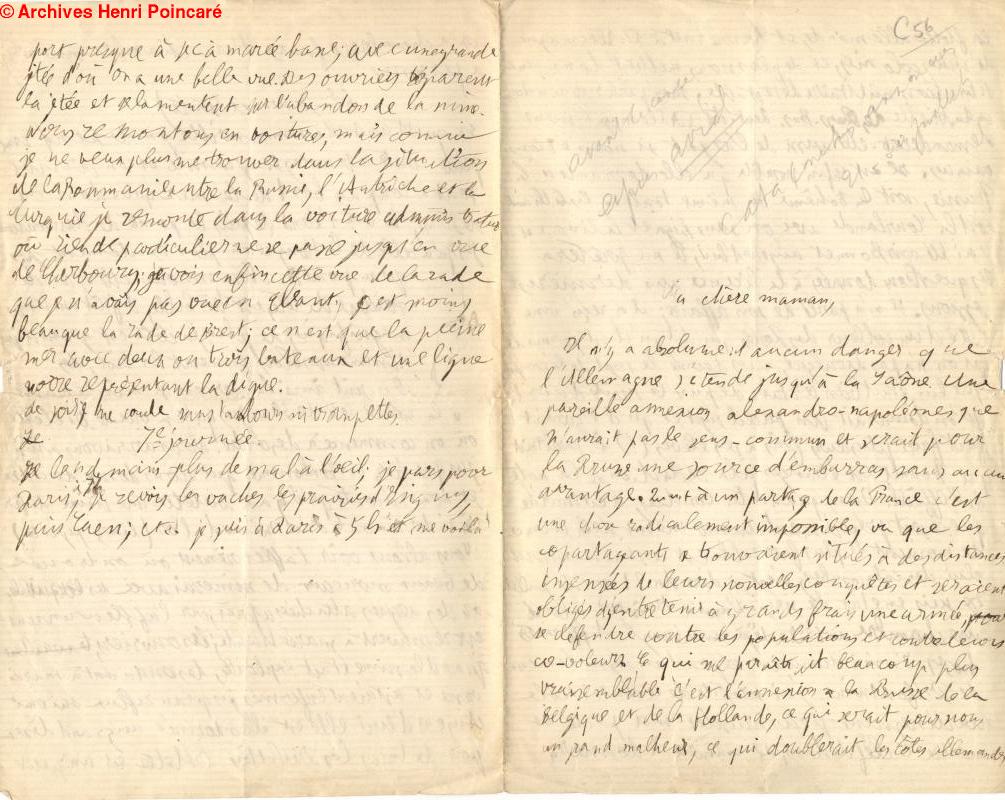 © Archives Henri Poincaré
port presque à sec à marée basse; avec une grande
jetée d'où on a une belle vue. Des ouvriers réparent
la jetée et se lamentent sur l'abandon de la mine.
Nous remontons en voitures, mais comme
je ne veux plus me trouver dans la situation
de la Roumanie entre la Russie, l'Autriche et la
Turquie je remonte dans la voiture
où rien de particulier ne se passe jusqu'en vue
de Cherbourg; je vois enfin cette vue de la rade
que je n'avais pas vue en avant, c'est moins
beau que la rade de Brest; ce n'est que la pleine
mer avec deux ou trois bateaux et une ligne
noire représentant la digue.
tambours ni trompettes.
7e journée
Le lendemain plus de mal à l'oeil; je pars pour
Paris; je revois les vaches les prairies d'Isigny,
puis Caen; etc. je suis à Paris à 5h et me voilà
C56
a chère maman,
Il n'y a absolument aucun danger que
l'Allemagne s'étende jusqu'à la Saône. Une
pareille annexion alexandro-napoléonesque
n'aurait pas le sens-commun et serait pour
la Prusse une source d'embarras sans aucun
avantage. Quant à un partage de la France c'est
une chose radicalement impossible, vu que les
copartageants se trouveraient situés à des distances
insensées de leurs nouvelles conquêtes et seraient
obligés d'entretenir à grands frais une armée pour
se défendre contre les populations et contre leurs
co-voleurs. Ce qui me paraîtrait beaucoup plus
vraisemblable c'est l'annexion à la Prusse de la
Belgique et de la Hollande, ce qui serait pour nous
un grand malheur, ce qui doublerait les côtes allemandes